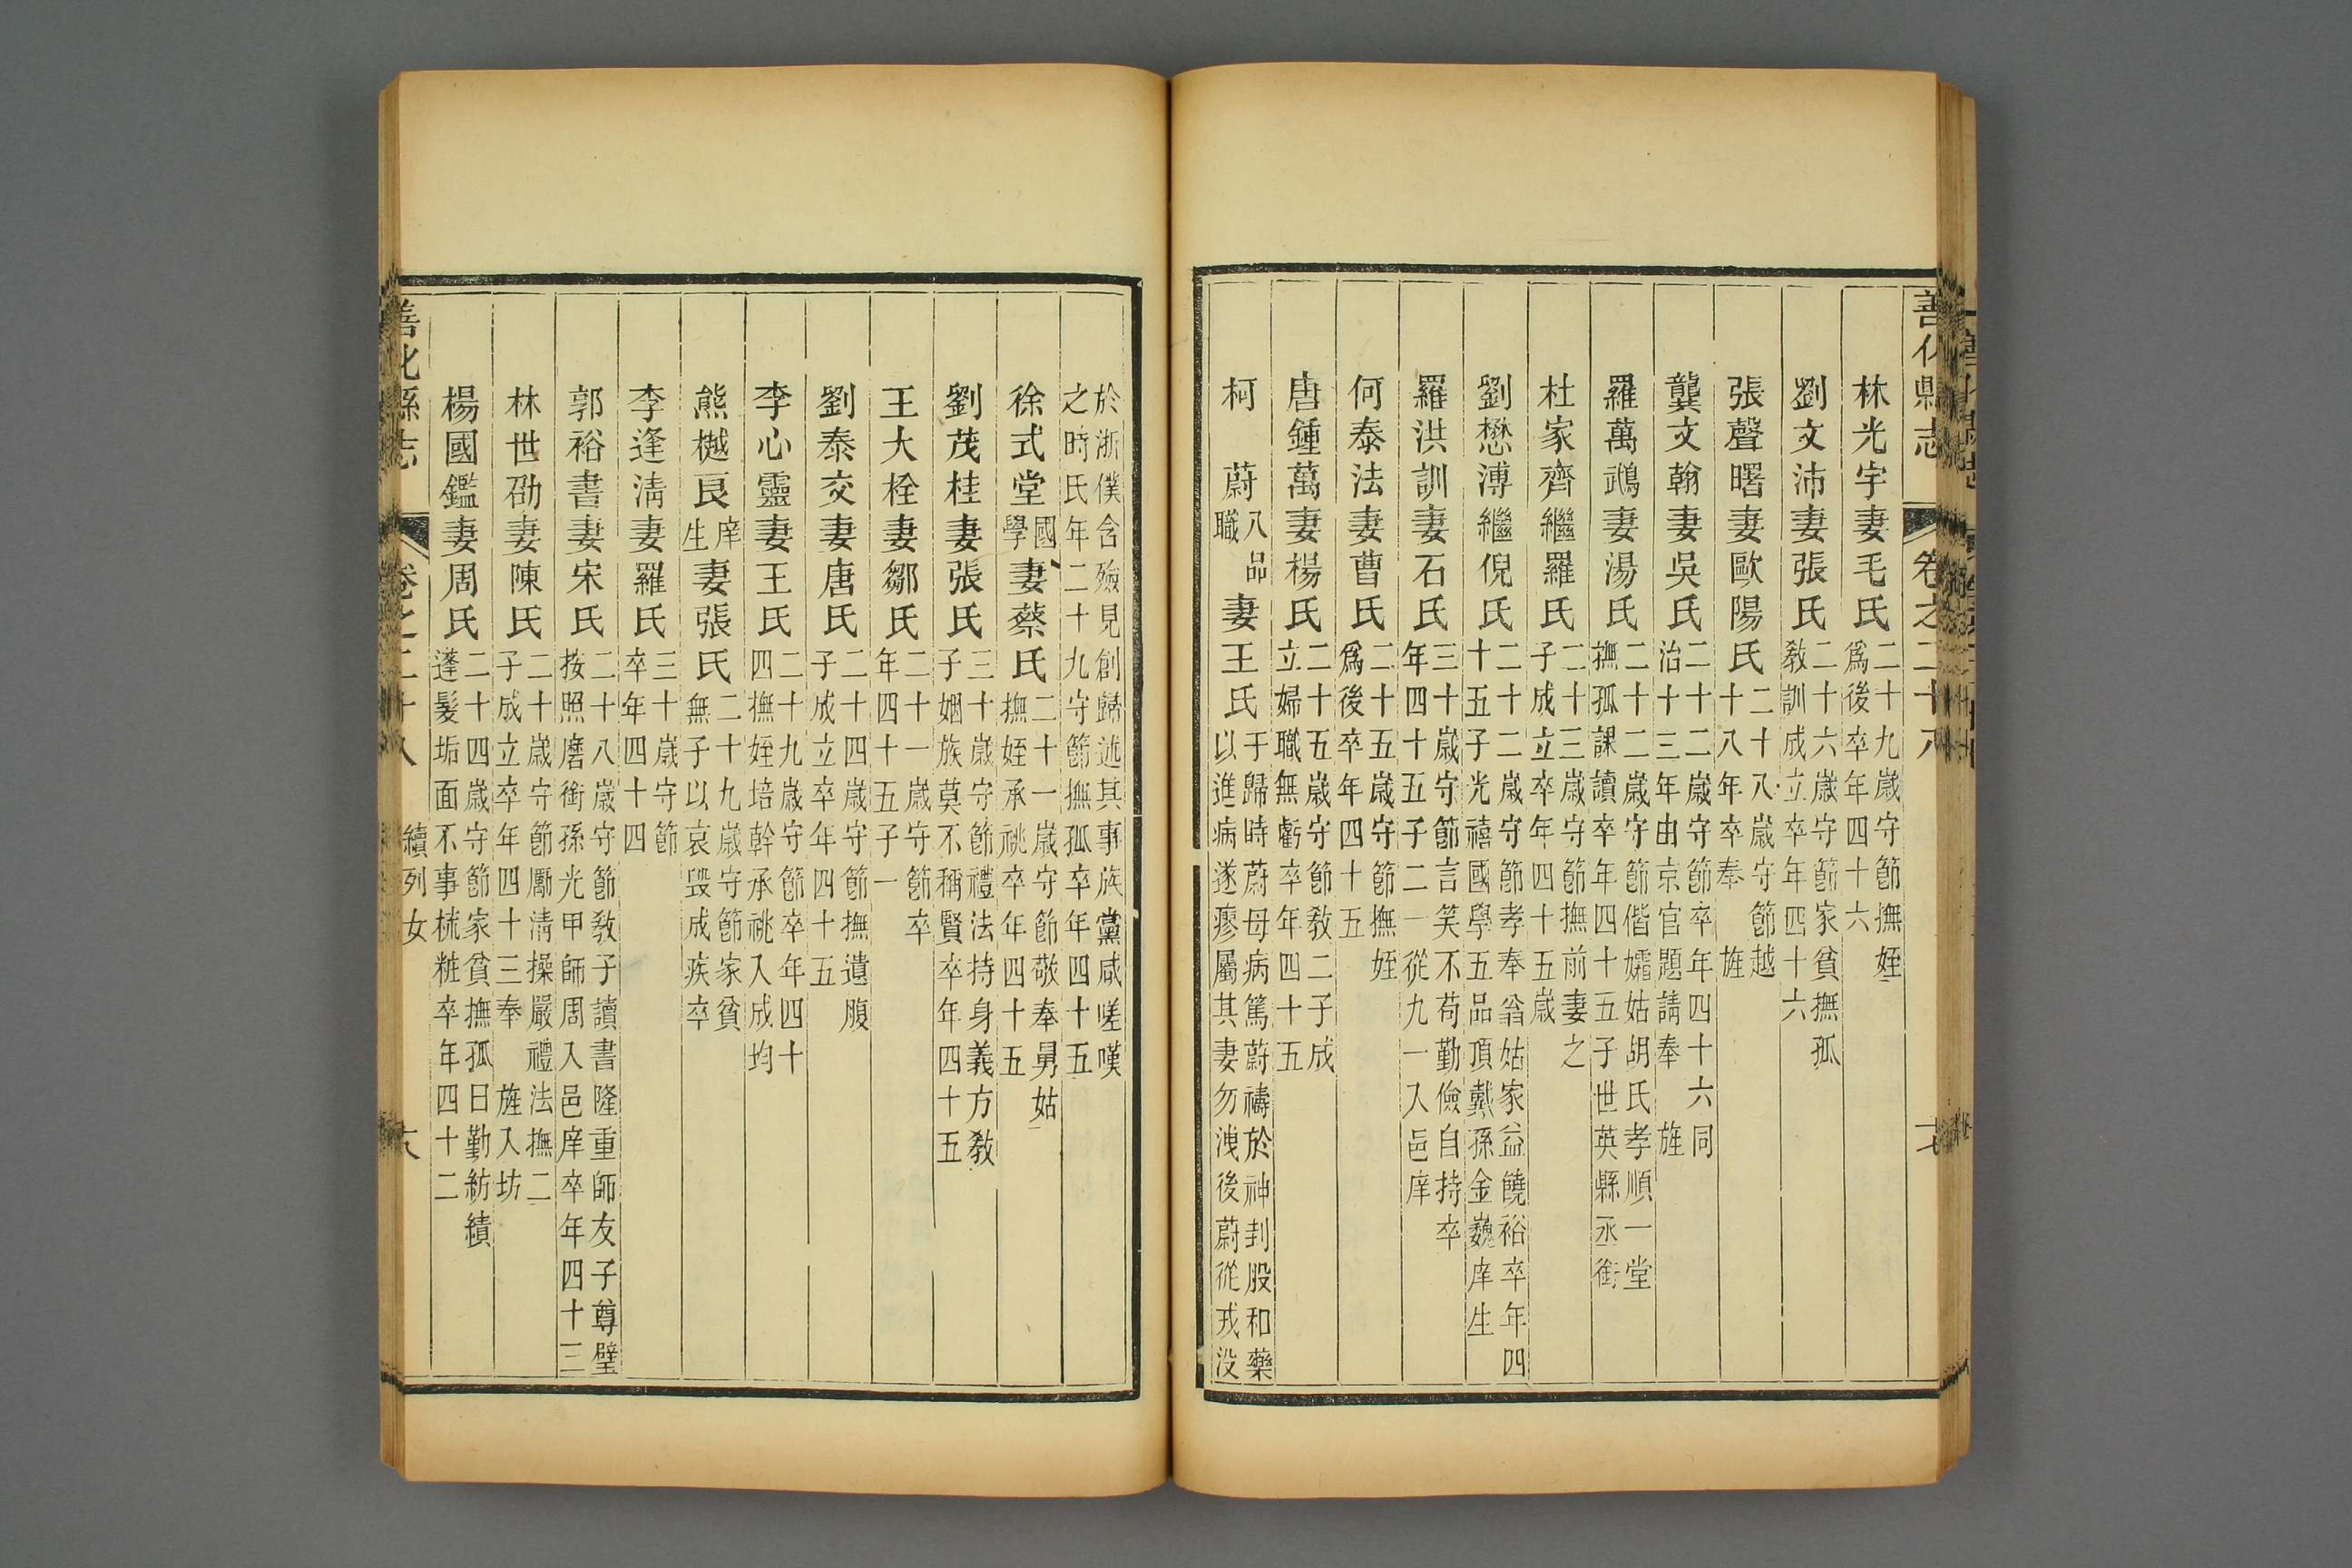 善化縣志 卷之二十八
林光宇妻毛氏 二十九歲守節撫姪爲後卒年四十六
劉文沛妻張氏 二十六歲守節家貧撫孤教訓成立卒年四十六
張聲曙妻歐陽氏 二十八歲守節越十八年卒奉 旌
龔文翰妻吳氏 二十二歲守節卒年四十六同治十三年由京官題請奉 旌
羅萬鵡妻湯氏 二十二歲守節偕孀姑胡氏孝順一堂撫孤課讀卒年四十五子世英縣丞銜
杜家齊繼羅氏 二十三歲守節撫前妻之子成立卒年四十五歲
劉懋溥繼倪氏 二十二歲守節孝奉翁姑家益饒裕卒年四十五子光禧國學五品頂戴孫金巍庠生
羅洪訓妻石氏 三十歲守節言笑不苟勤儉自持卒年四十五子二一從九一入邑庠
何泰法妻曹氏 二十五歲守節撫姪爲後卒年四十五
唐鍾萬妻楊氏 二十五歲守節教二子成立婦職無虧卒年四十五
柯 蔚八品職妻王氏 于歸時蔚母病篤蔚禱於神刲股和藥以進病遂瘳屬其妻勿洩後蔚從戎没
於浙僕含殮見創歸述其事族黨咸嗟嘆之時氏年二十九守節撫孤卒年四十五
徐式堂國學妻蔡氏 二十一歲守節敬奉舅姑撫姪承祧卒年四十五
劉茂桂妻張氏 三十歲守節禮法持身義方教子姻族莫不稱賢卒年四十五
王大栓妻鄒氏 二十一歲守節卒年四十五子一
劉泰交妻唐氏 二十四歲守節撫遺腹子成立卒年四十五
李心靈妻王氏 二十九歲守節卒年四十四撫姪培幹承祧入成均
熊樾良庠生妻張氏 二十九歲守節家貧無子以哀毀成疾卒
李逢淸妻羅氏 三十歲守節卒年四十四
郭裕書妻宋氏 二十八歲守節教子讀書隆重師友子尊璧按照磨銜孫光甲師周入邑庠卒年四十三
林世劭妻陳氏 二十歲守節勵淸操嚴禮法撫二子成立卒年四十三奉 旌入坊
楊國鑑妻周氏 二十四歲守節家貧撫孤日勤紡績蓬髮垢面不事梳粧卒年四十二
善化縣志 卷之二十八 續列女